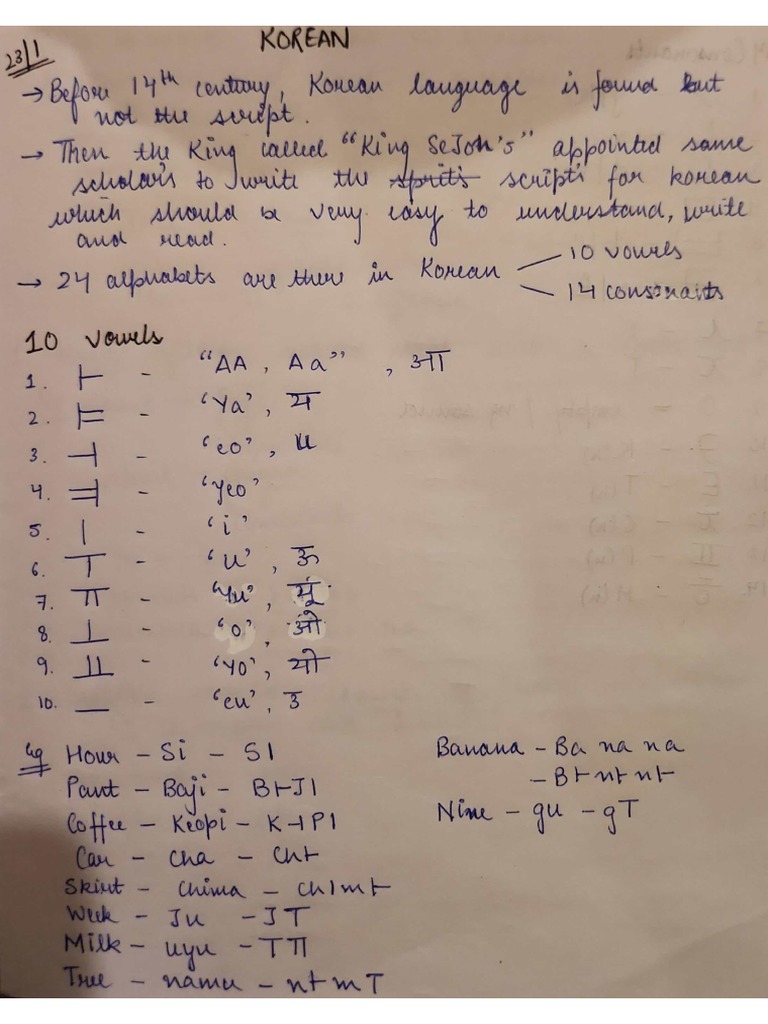 KOREAN
23/1
→ Before 14th century, Korean language is found but
not the script.
→ Then the King called "King SeJoh's" appointed some
scholars to write the sprits scripts for korean
which should be very easy to understand, write
and read.
→ 24 alphabets are there in Korean
10 vowels
14 consonants
10 vowels
1. ㅏ - "AA, Aa", आ
2. ㅑ - 'Ya', य
3. ㅓ - 'eo',
4. ㅕ - 'yeo'
5. ㅣ - 'i'
6. ㅜ - 'u', ऊ
7. ㅠ - 'Yu', यूं
8. ㅗ - 'o', ओ
9. ㅛ - 'Yo', यो
10. ㅡ - 'eu', उ
eg Hour - Si - Sㅣ
Pant - Baji - BㅏJㅣ
Coffee - Keopi - KㅓPㅣ
Car - Cha - Chㅏ
Skirt - Chima - Chㅣmㅏ
Week - Ju - Jㅜ
Milk - uyu - ㅜㅠ
Tree - namu - nㅏmㅜ
Banana - Ba na na
- Bㅏnㅏnㅏ
Nine - gu - gㅜ